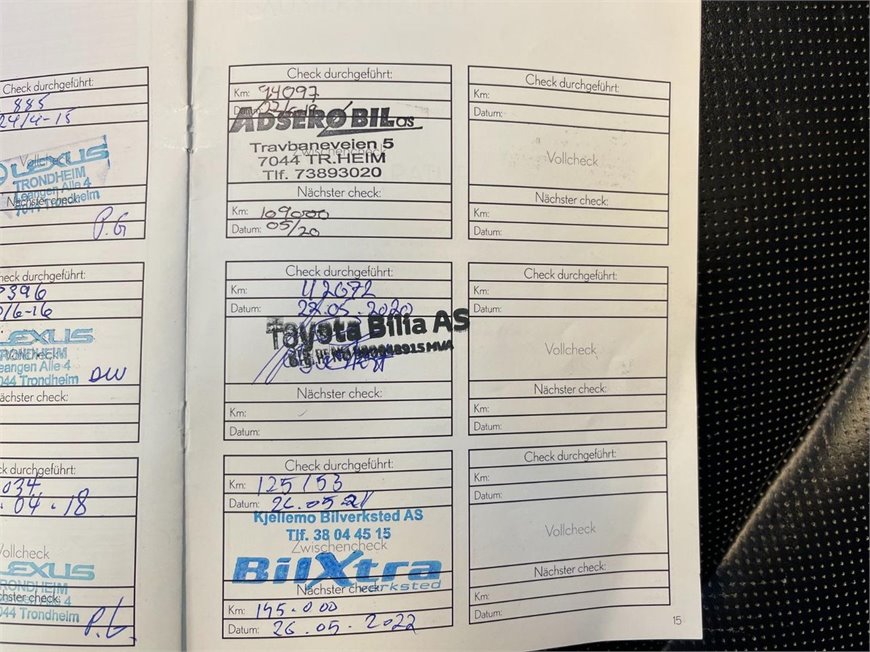 Check durchgeführt:
885
24/4-15
Vollcheck
LEXUS
TRONDHEIM
Leangen Alle 4
Nächster check:
7044 Trondheim
P.G
check durchgeführt:
396
/6-16
LEXUS
TRONDHEIM
Leangen Alle 4
7044 Trondheim
ächster check:
ck durchgeführt:
034
.04.18
Vollcheck
LEXUS
TRONDHEIM
7044 Trondheim
P.G.
Check durchgeführt:
Km: 94097
ADSERO BIL as
Travbaneveien 5
Zwischencheck
7044 TR.HEIM
Tlf. 73893020
Nächster check:
Km: 109000
Datum: 05/20
Check durchgeführt:
Km:
Datum: 27.05.2020
Toyota Bilia AS
Nächster check:
Km:
Datum:
Check durchgeführt:
Km: 125153
Datum: 26.05.21
Kjellemo Bilverksted AS
Tlf. 38 04 45 15
Zwischencheck
BilXtra
verksted
Nächster check:
Km: 145.000
Datum: 26.05.2022
Check durchgeführt:
Km:
Datum:
Vollcheck
Nächster check:
Km:
Datum:
Check durchgeführt:
Km:
Datum:
Vollcheck
Nächster check:
Km:
Datum:
Check durchgeführt:
Km:
Datum:
Vollcheck
Nächster check:
Km:
Datum:
15